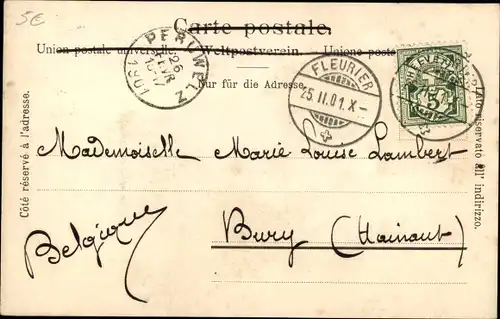 5€
Carte postale.
Union postale universelle. Weltpostverein. Unione postale
Nur für die Adresse.
PERUWELZ
26
FEVR
1901
FLEURIER
25.II.01.X-
HELVETIA
5
Côté réservé à l'adresse.
Lato riservato all' indirizzo.
Mademoiselle Marie Louise Lambert
Bury (Hainaut)
Belgique